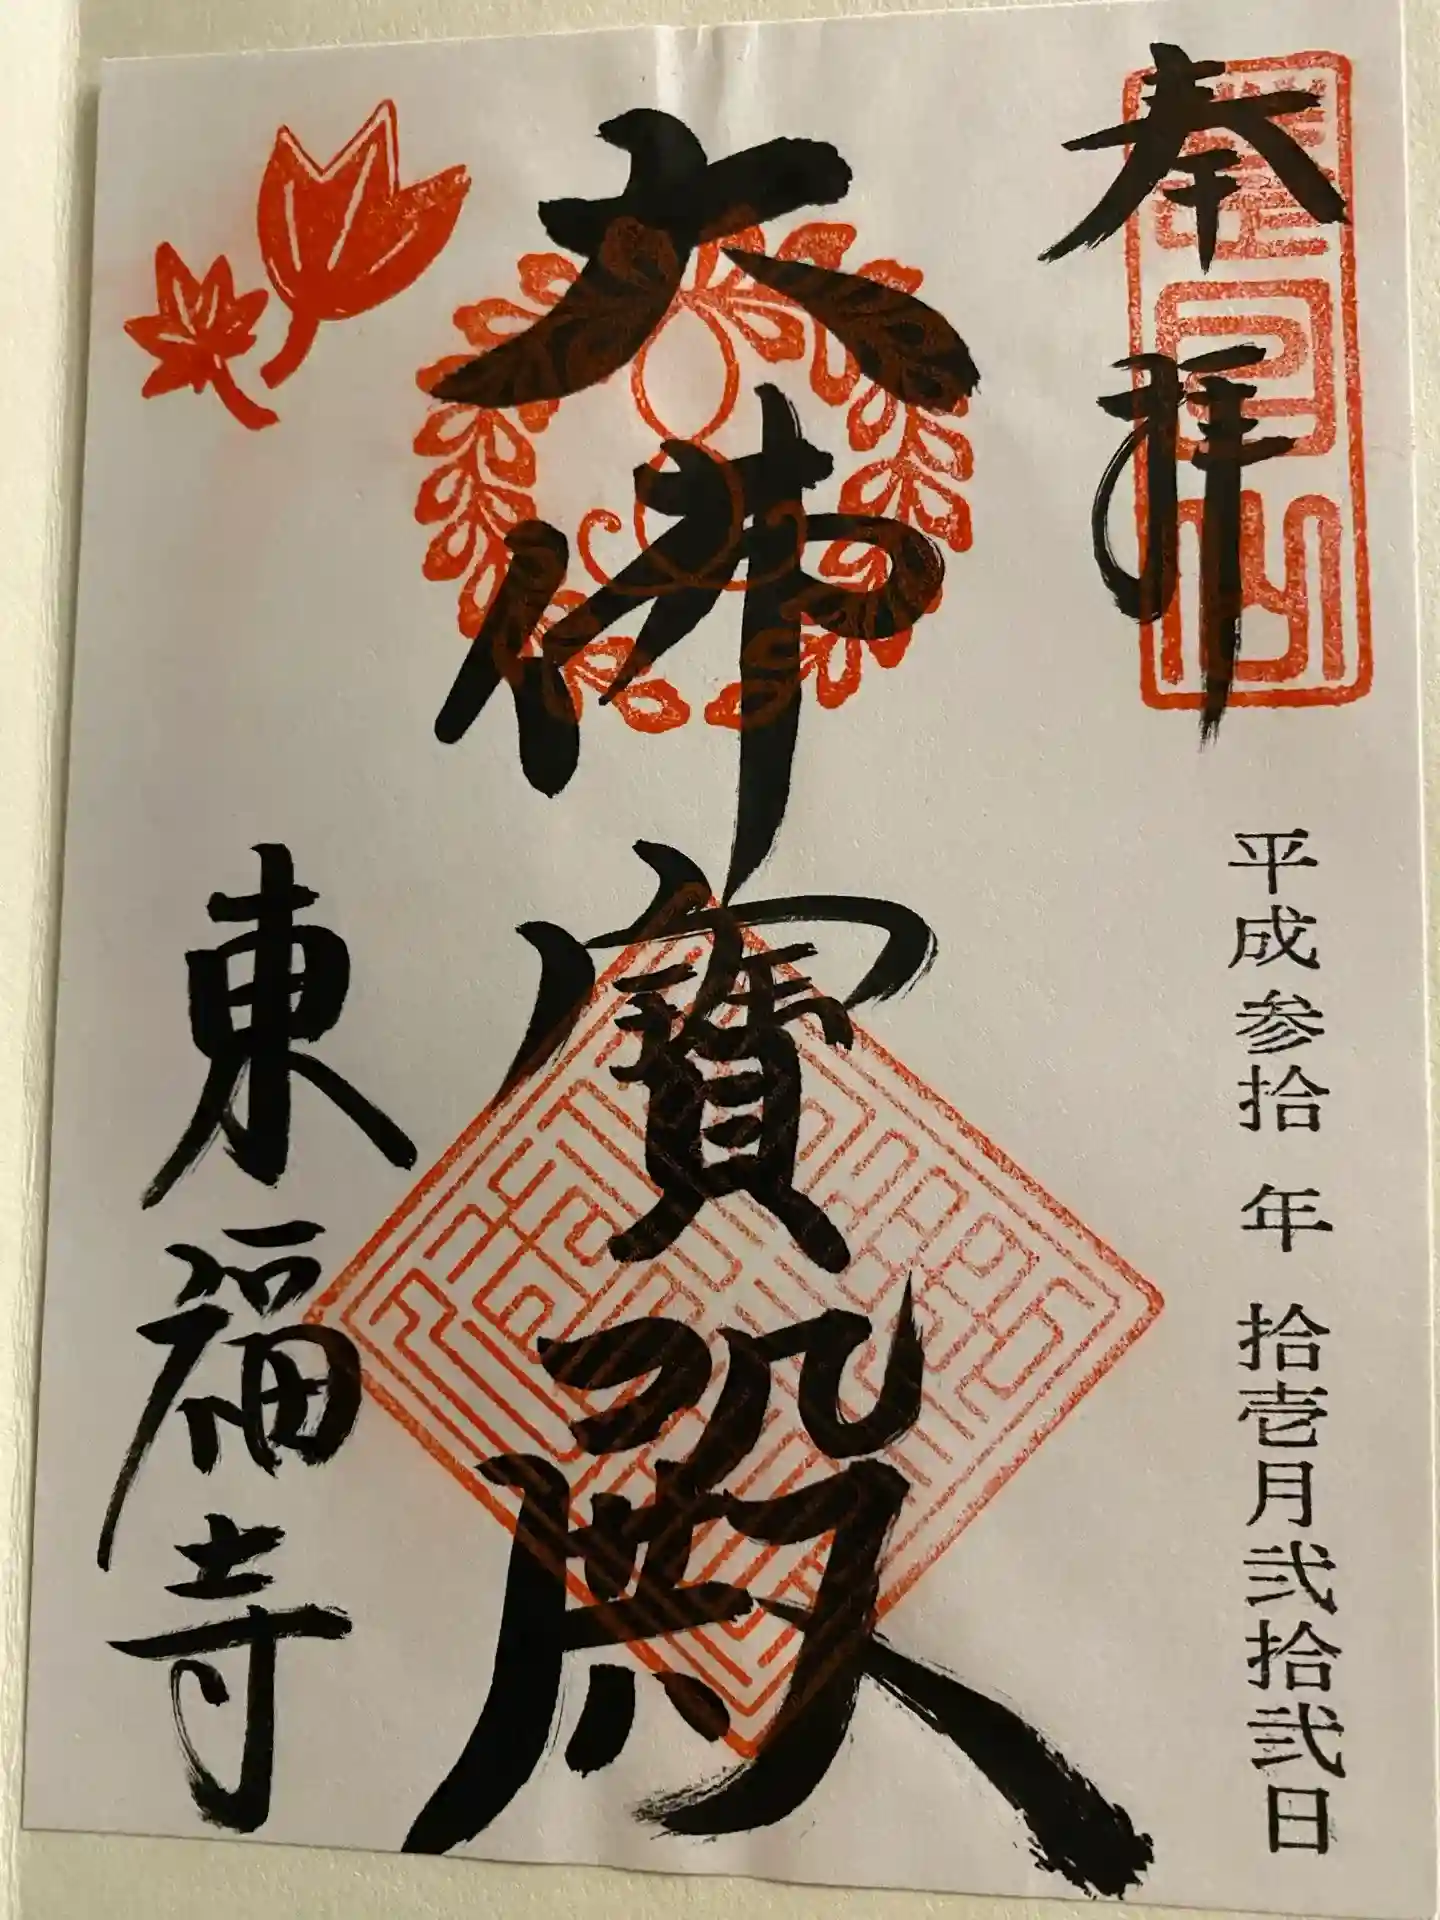 奉拝
平成参拾年拾壱月弐拾弐日
大佛寶殿
東福寺